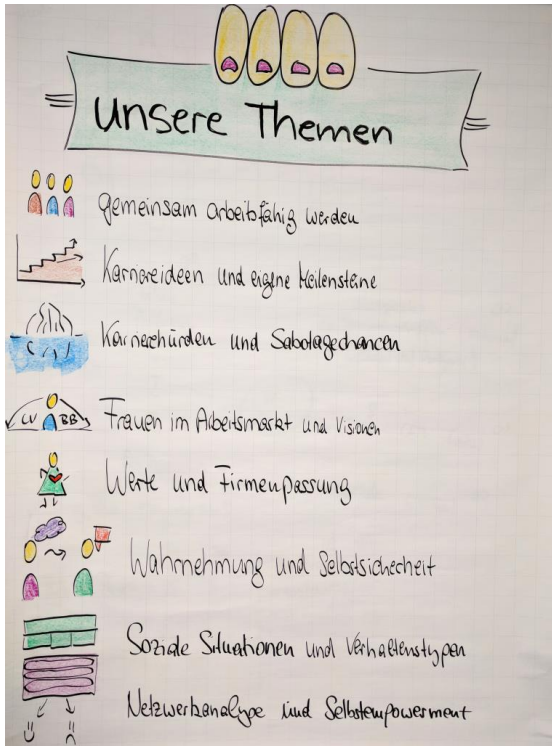 Unsere Themen
gemeinsam arbeitsfähig werden
Karriereideen und eigene Meilensteine
Karrierehürden und Sabotagechancen
LV BB Frauen im Arbeitsmarkt und Visionen
Werte und Firmenpassung
Wahrnehmung und Selbstsicherheit
Soziale Situationen und Verhaltenstypen
Netzwerkanalyse und Selbstempowerment